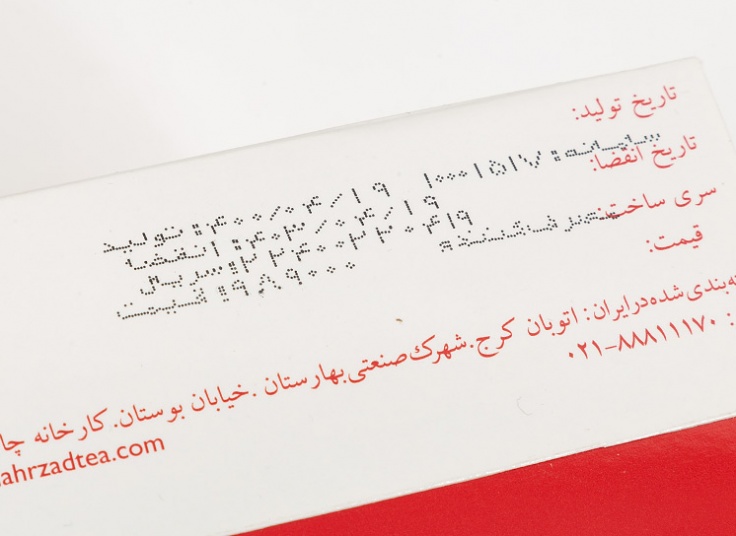 تاریخ تولید:
تاریخ انقضا:
سری ساخت:
قیمت:
سامانه: ۱۰۰۰۱۵۱۷
مصرف کننده
تولید: ۴۰۰/۰۴/۱۹
انقضا: ۴۰۳/۰۴/۱۹
سریال: ۲۲۴۰۰۲۲۰۴۱۹
قیمت: ۹۸۹۰۰۰
بندی شده در ایران: اتوبان کرج. شهرک صنعتی بهارستان. خیابان بوستان. کارخانه چا
۰۲۱-۸۸۸۱۱۱۷۰
ahrzadtea.com